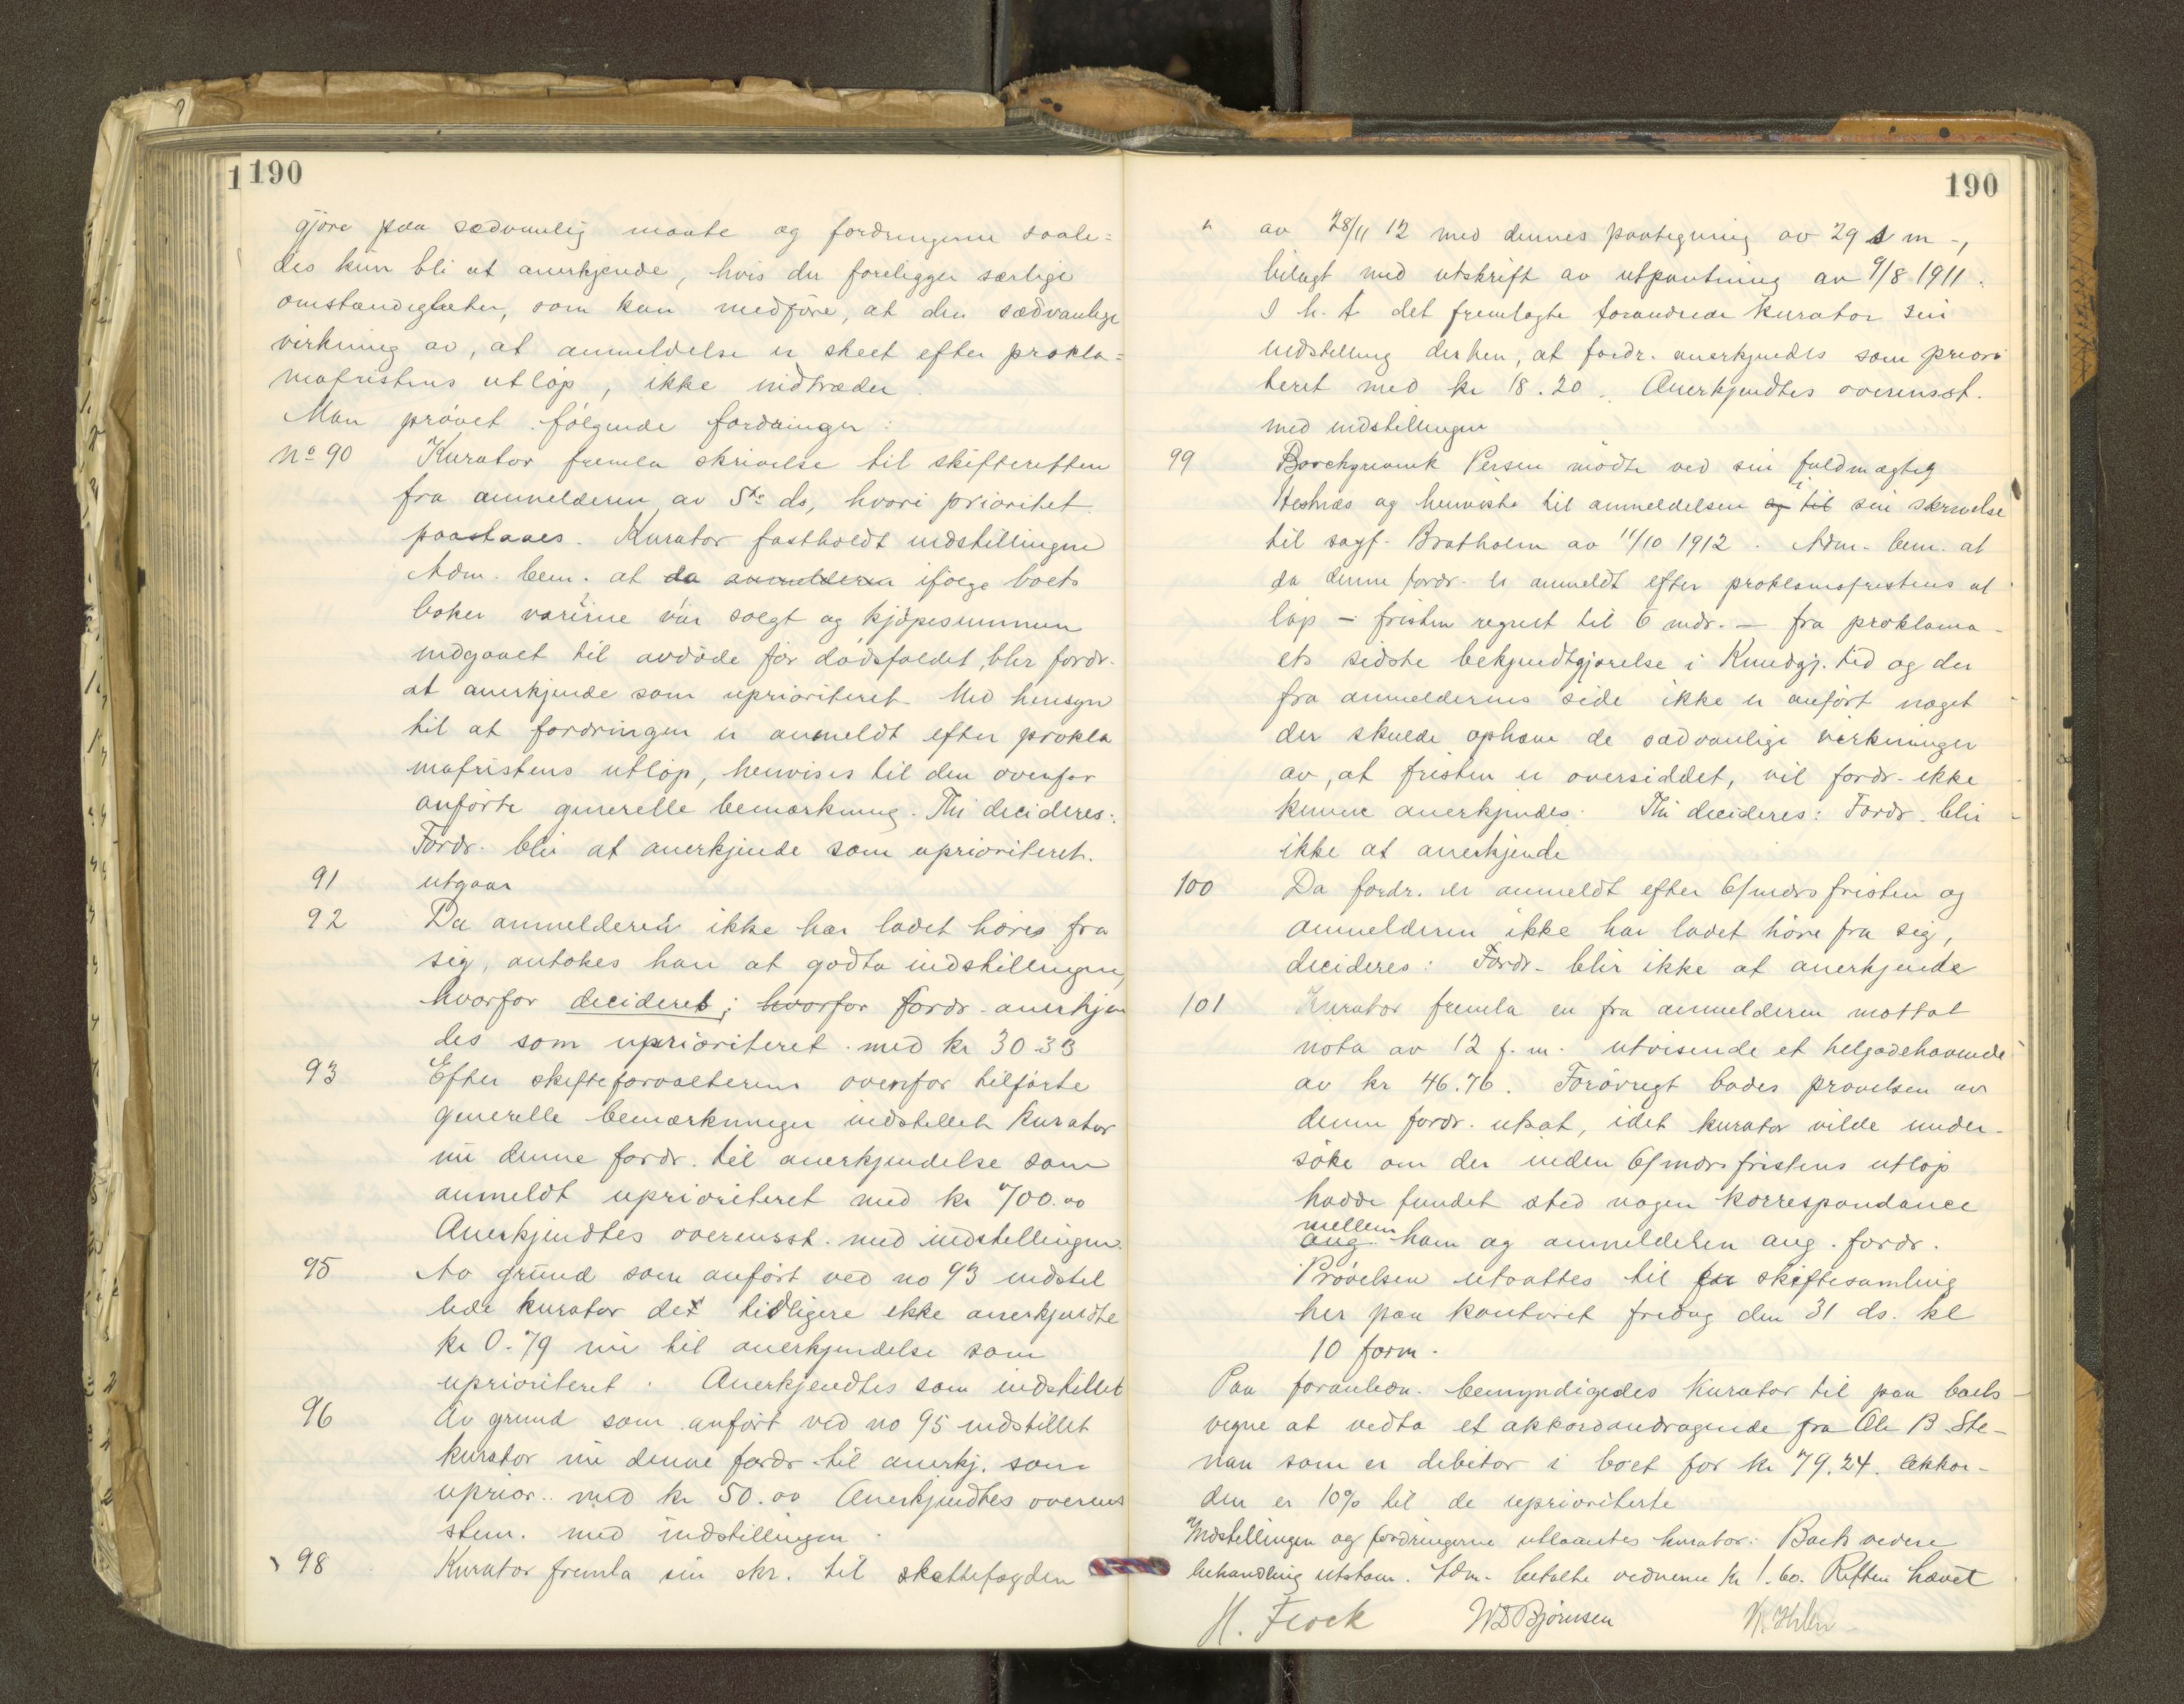 190
gjöre paa sædvanlig maate og fordringerne saale=
des kun bli at anerkjende, hvis der foreligger særlige
omstændigheter, som kan medföre, at den sædvanlige
virkning av, at anmeldelse er skeet efter prokla=
mafristens utlöp, ikke indtræder.
Man prövet följende fordringer:
No 90 Kurator fremla skrivelse til skifteretten
fra anmelderen av 5te ds, hvori prioritet
paastaaes. Kurator fastholdt indstillingen
Adm. bem. at da anmelderen ifölge boets
böker varerne var solgt og kjöpesummen
indgaaet til avdöde för dödsfaldet, blir fordr.
at anerkjende som uprioriteret. Med hensyn
til at fordringen er anmeldt efter prokla
mafristens utlöp, henvises til den ovenfor
anförte generelle bemærkning. Thi decideres:
Fordr. blir at anerkjende som uprioriteret.
91 utgaar
92 Da anmelderen ikke har ladet höres fra
sig, antakes han at godta indstillingen,
hvorfor decideret; hvorfor fordr. anerkjen
des som uprioriteret med kr 30.33
93 Efter skifteforvalterens ovenfor tilförte
generelle bemærkninger indstillet kurator
nu denne fordr. til anerkjendelse som
anmeldt uprioriteret med kr 700.00
Anerkjendtes overensst. med indstillingen.
95 Av grund som anfört ved no 93 indstil
lede kurator det tidligere ikke anerkjendte
kr 0.79 nu til anerkjendelse som
uprioriteret. Anerkjendtes som indstillet
96 Av grund som anfört ved no 95 indstillet
kurator nu denne fordr. til anerkj. som
uprior. med kr 50.00 Anerkjendtes overens
stem. med indstillingen.
98 Kurator fremla sin skr. til skattefogden
190
av 28/11 12 med dennes paategning av 29 s m -,
bilagt med utskrift av utpantning av 9/8 1911.
I h. t. det fremlagte forandrede kurator sin
indstilling derhen, at fordr. anerkjendes som priori
teret med kr 18.20. Anerkjendtes overensst.
med indstillingen
99 Borchgrevink Persen mödte ved sin fuldmægtig
Hestnæs og henviste til anmeldelsen og til i sin skrivelse
til sagf. Bratholm av 11/10 1912. Adm. bem. at
da denne fordr. er anmeldt efter proklamafristens ut
löp - fristen regnet til 6 mdr. - fra proklama-
ets sidste bekjendtgjörelse i Kundgj. tid og der
fra anmelderens side ikke er anfört noget
der skulde ophæve de sædvanlige virkninger
av, at fristen er oversiddet, vil fordr. ikke
kunne anerkjendes. Thi decideres: Fordr. blir
ikke at anerkjende
100 Da fordr. er anmeldt efter 6/mdrs fristen og
anmelderen ikke har ladet höre fra sig,
decideres: Fordr. blir ikke at anerkjende
101 Kurator fremla en fra anmelderen mottat
nota av 12 f. m. utvisende et tilgodehavende
av kr 46.76. Forövrigt bades prövelsen av
denne fordr. utsat, idet kurator vilde under-
söke om der inden 6/mdrs fristens utlöp
hadde fundet sted nogen korrespondance
ang. mellem ham og anmelderen ang. fordr.
Prövelsen utsattes til en skiftesamling
her paa kontoret fredag den 31 ds. kl
10 form.
Paa foranledn. bemyndigedes kurator til paa boets
vegne at vedta et akkordandragende fra Ole B. Ste-
nan som er debitor i boet for kr 79.24. Akkor-
den er 10% til de uprioriterte
Indstillingen og fordringerne utlaantes kurator. Boets videre
behandling utstaar. Adm. betalte vidnerne kr 1.60. Retten hævet
H. Flock W D Björnsen